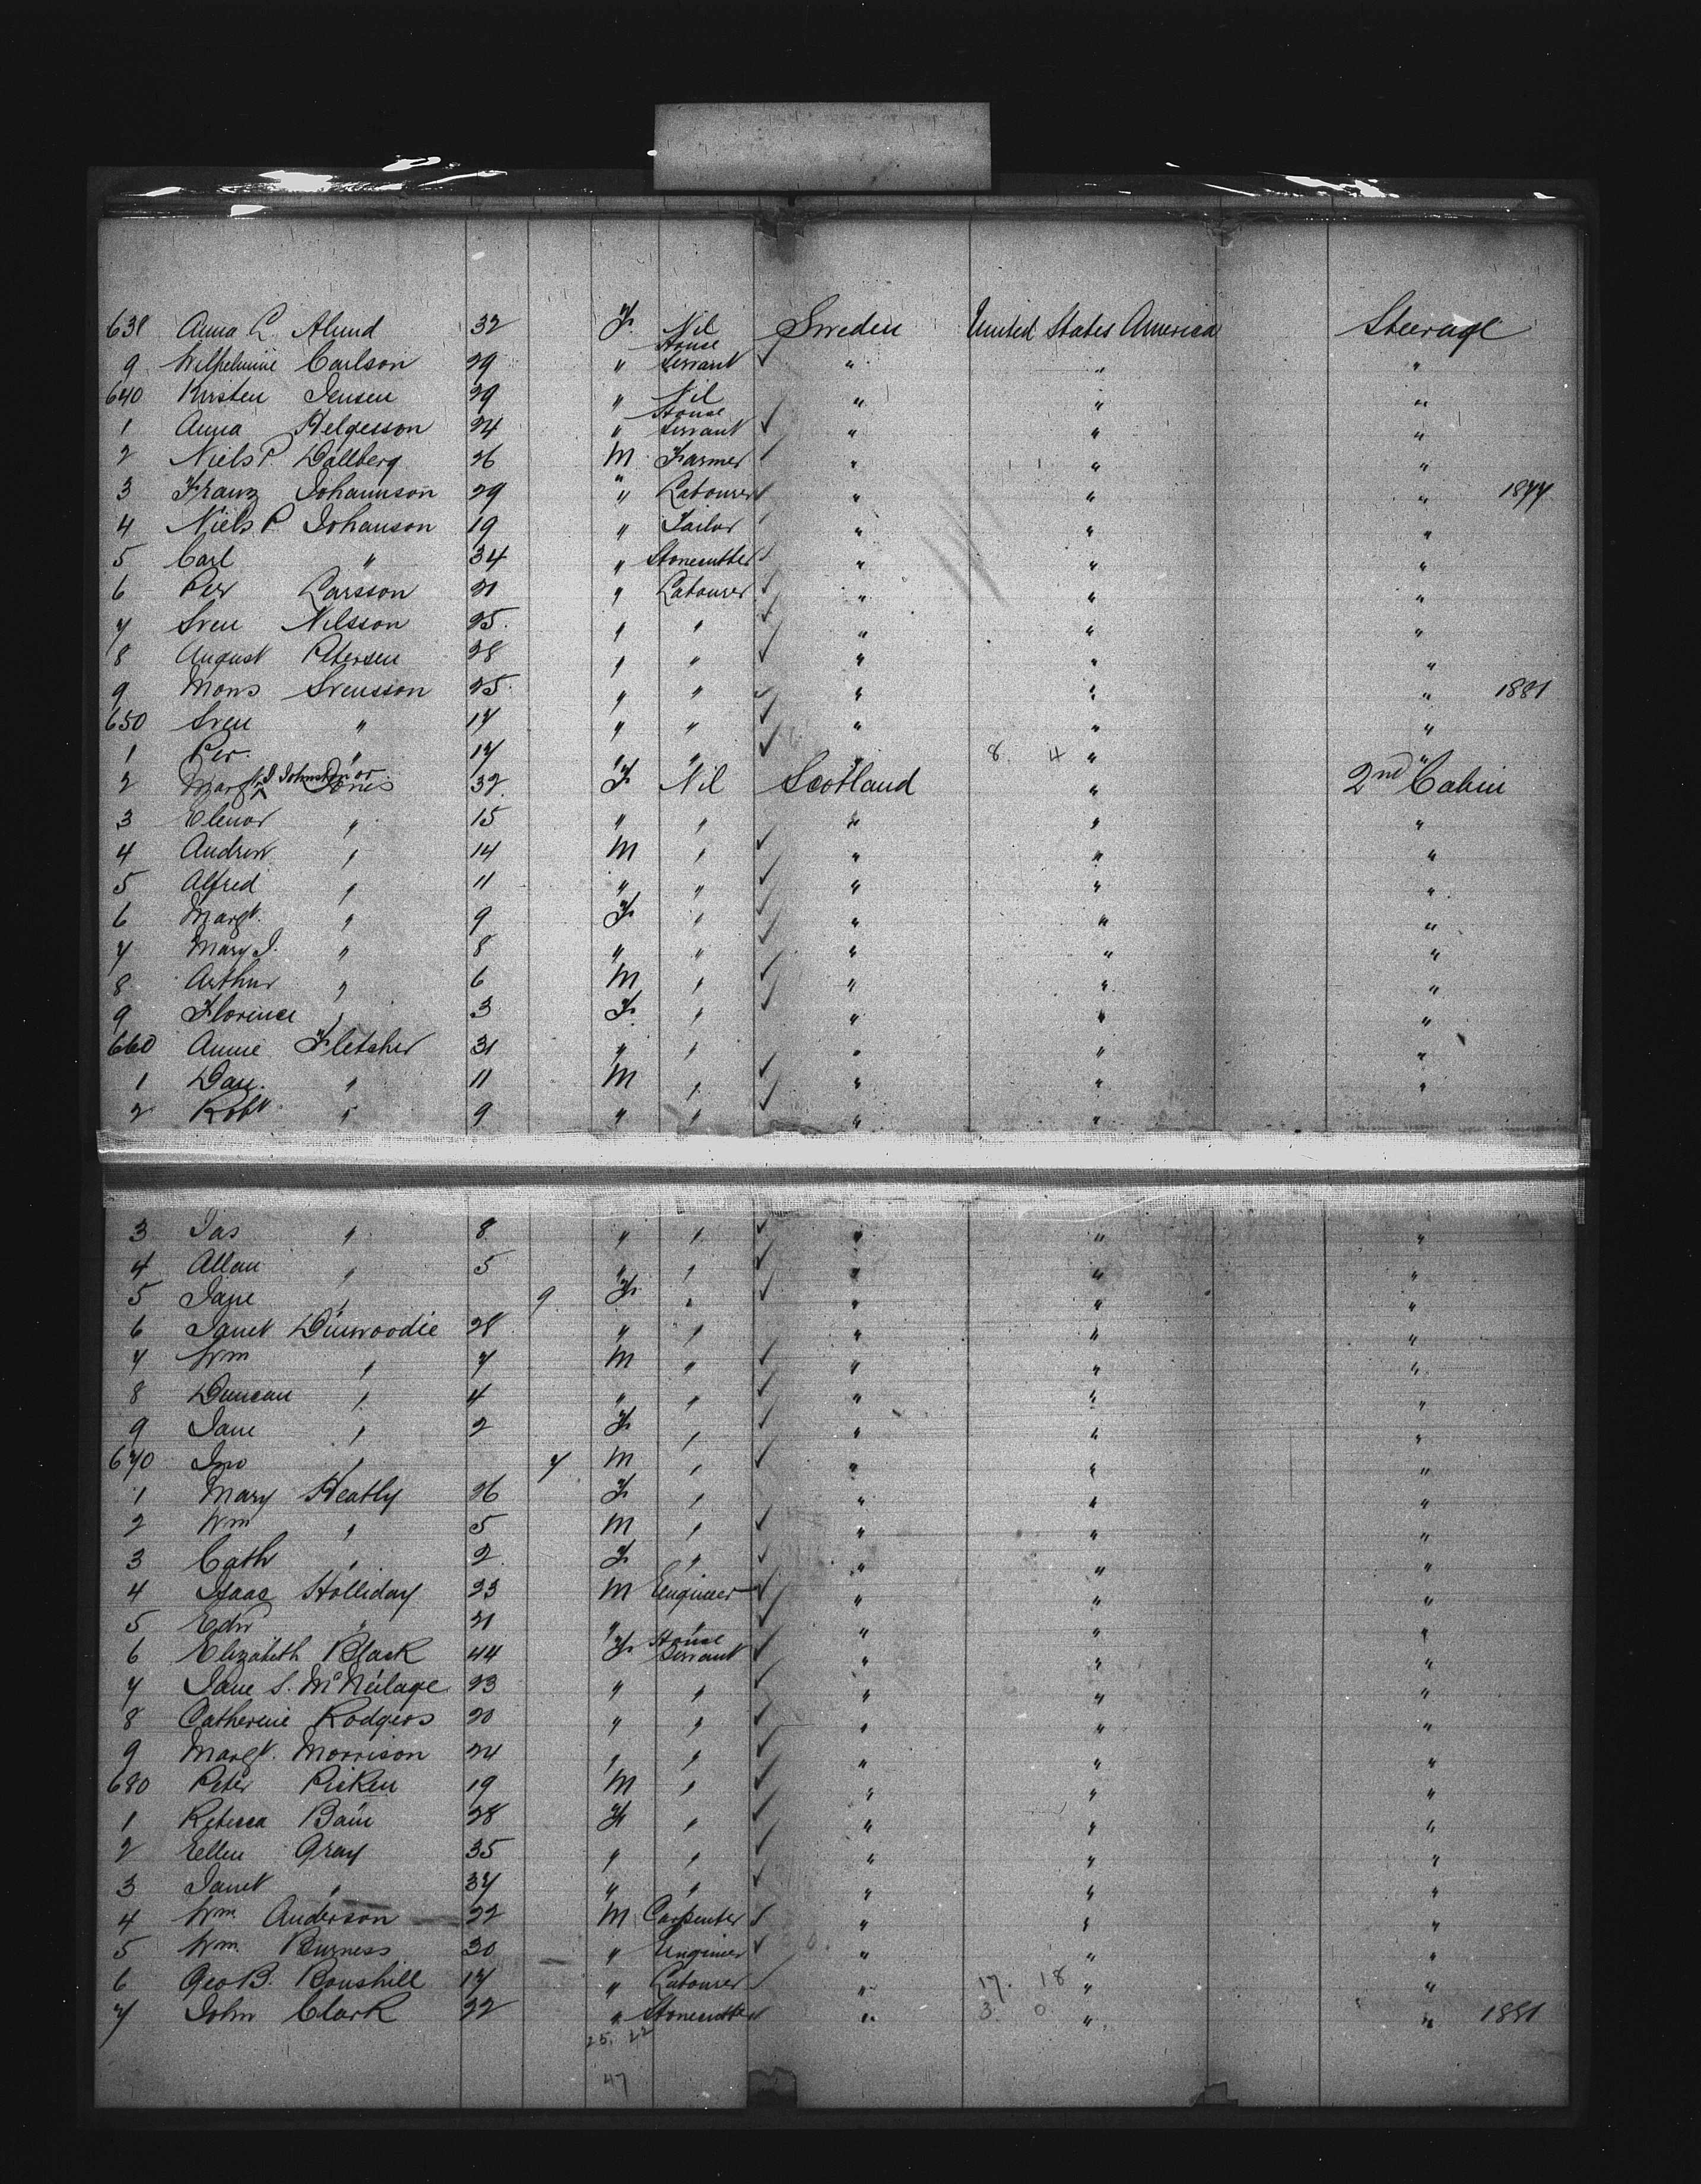 638 Anna C. Alund 32 F. Nil Sweden United States America Steerage
9 Wilhelmine Carlson 29 " House Servant ✓ " " "
640 Kirsten Jensen 29 " Nil " " "
1 Anna Helgesson 24 " House Servant ✓ " " "
2 Niels P. Dallberg 26 M Farmer ✓ " " "
3 Franz Johannson 29 " Labourer ✓ " " " 1877
4 Niels P. Johanson 19 " Tailor ✓ " " "
5 Carl " 34 " Stonecutter ✓ " " "
6 Per Larsson 21 " Labourer ✓ " " "
7 Sven Nilsson 25. " " ✓ " " "
8 August Petersen 28 " " ✓ " " "
9 Mons Svensson 25. " " ✓ " " " 1881
650 Sven " 17 " " ✓ " " "
1 Per. " 17 " " ✓ " 8. 4 " "
2 Margt J. Johnston or Jones 32. F Nil Scotland " 2nd Cabin
3 Elenor " 15 " " " " "
4 Andrew " 14 M " ✓ " " "
5 Alfred " 11 " " ✓ " " "
6 Margt. " 9 F " ✓ " " "
7 Mary J. " 8 " " ✓ " " "
8 Arthur " 6 M " ✓ " " "
9 Florence " 3 F. " ✓ " " "
660 Annie Fletcher 31 " " " " "
1 Dan. " 11 M " ✓ " " "
2 Robt. " 9 " " ✓ " " "
3 Jas " 8 " " ✓ " " "
4 Allan " 5 " " ✓ " " "
5 Jane " 9 F. " ✓ " " "
6 Janet Dinwoodie 28 " " " " "
7 Wm " 7 M " ✓ " " "
8 Duncan " 4 " " ✓ " " "
9 Jane " 2 F " ✓ " " "
670 Jno " 7 M " ✓ " " "
1 Mary Heatly 26 F " " " "
2 Wm " 5 M " ✓ " " "
3 Cath " 2. F " ✓ " " "
4 Isaac Holliday 23 M Engineer ✓ " " "
5 Edw " 21 " " ✓ " " "
6 Elizabeth Black 44 F House Servant ✓ " " "
7 Jane S. McNeilage 23 " " ✓ " " "
8 Catherine Rodgers 20 " " ✓ " " "
9 Margt. Morrison 24 " " ✓ " " "
680 Peter Picken 19 M " ✓ " " "
1 Rebecca Bain 28 F " ✓ " " "
2 Ellen Gray 35 " " ✓ " " "
3 Janet " 37 " " ✓ " " "
4 Wm. Anderson 22 M Carpenter ✓ " " "
5 Wm. Burness 30 " Engineer ✓ " " "
6 Geo B. Boushill 17 " Labourer ✓ " 17. 18 " "
7 John Clark 22 " Stonecutter ✓ " 3. 0 " " 1881
25. 22
47